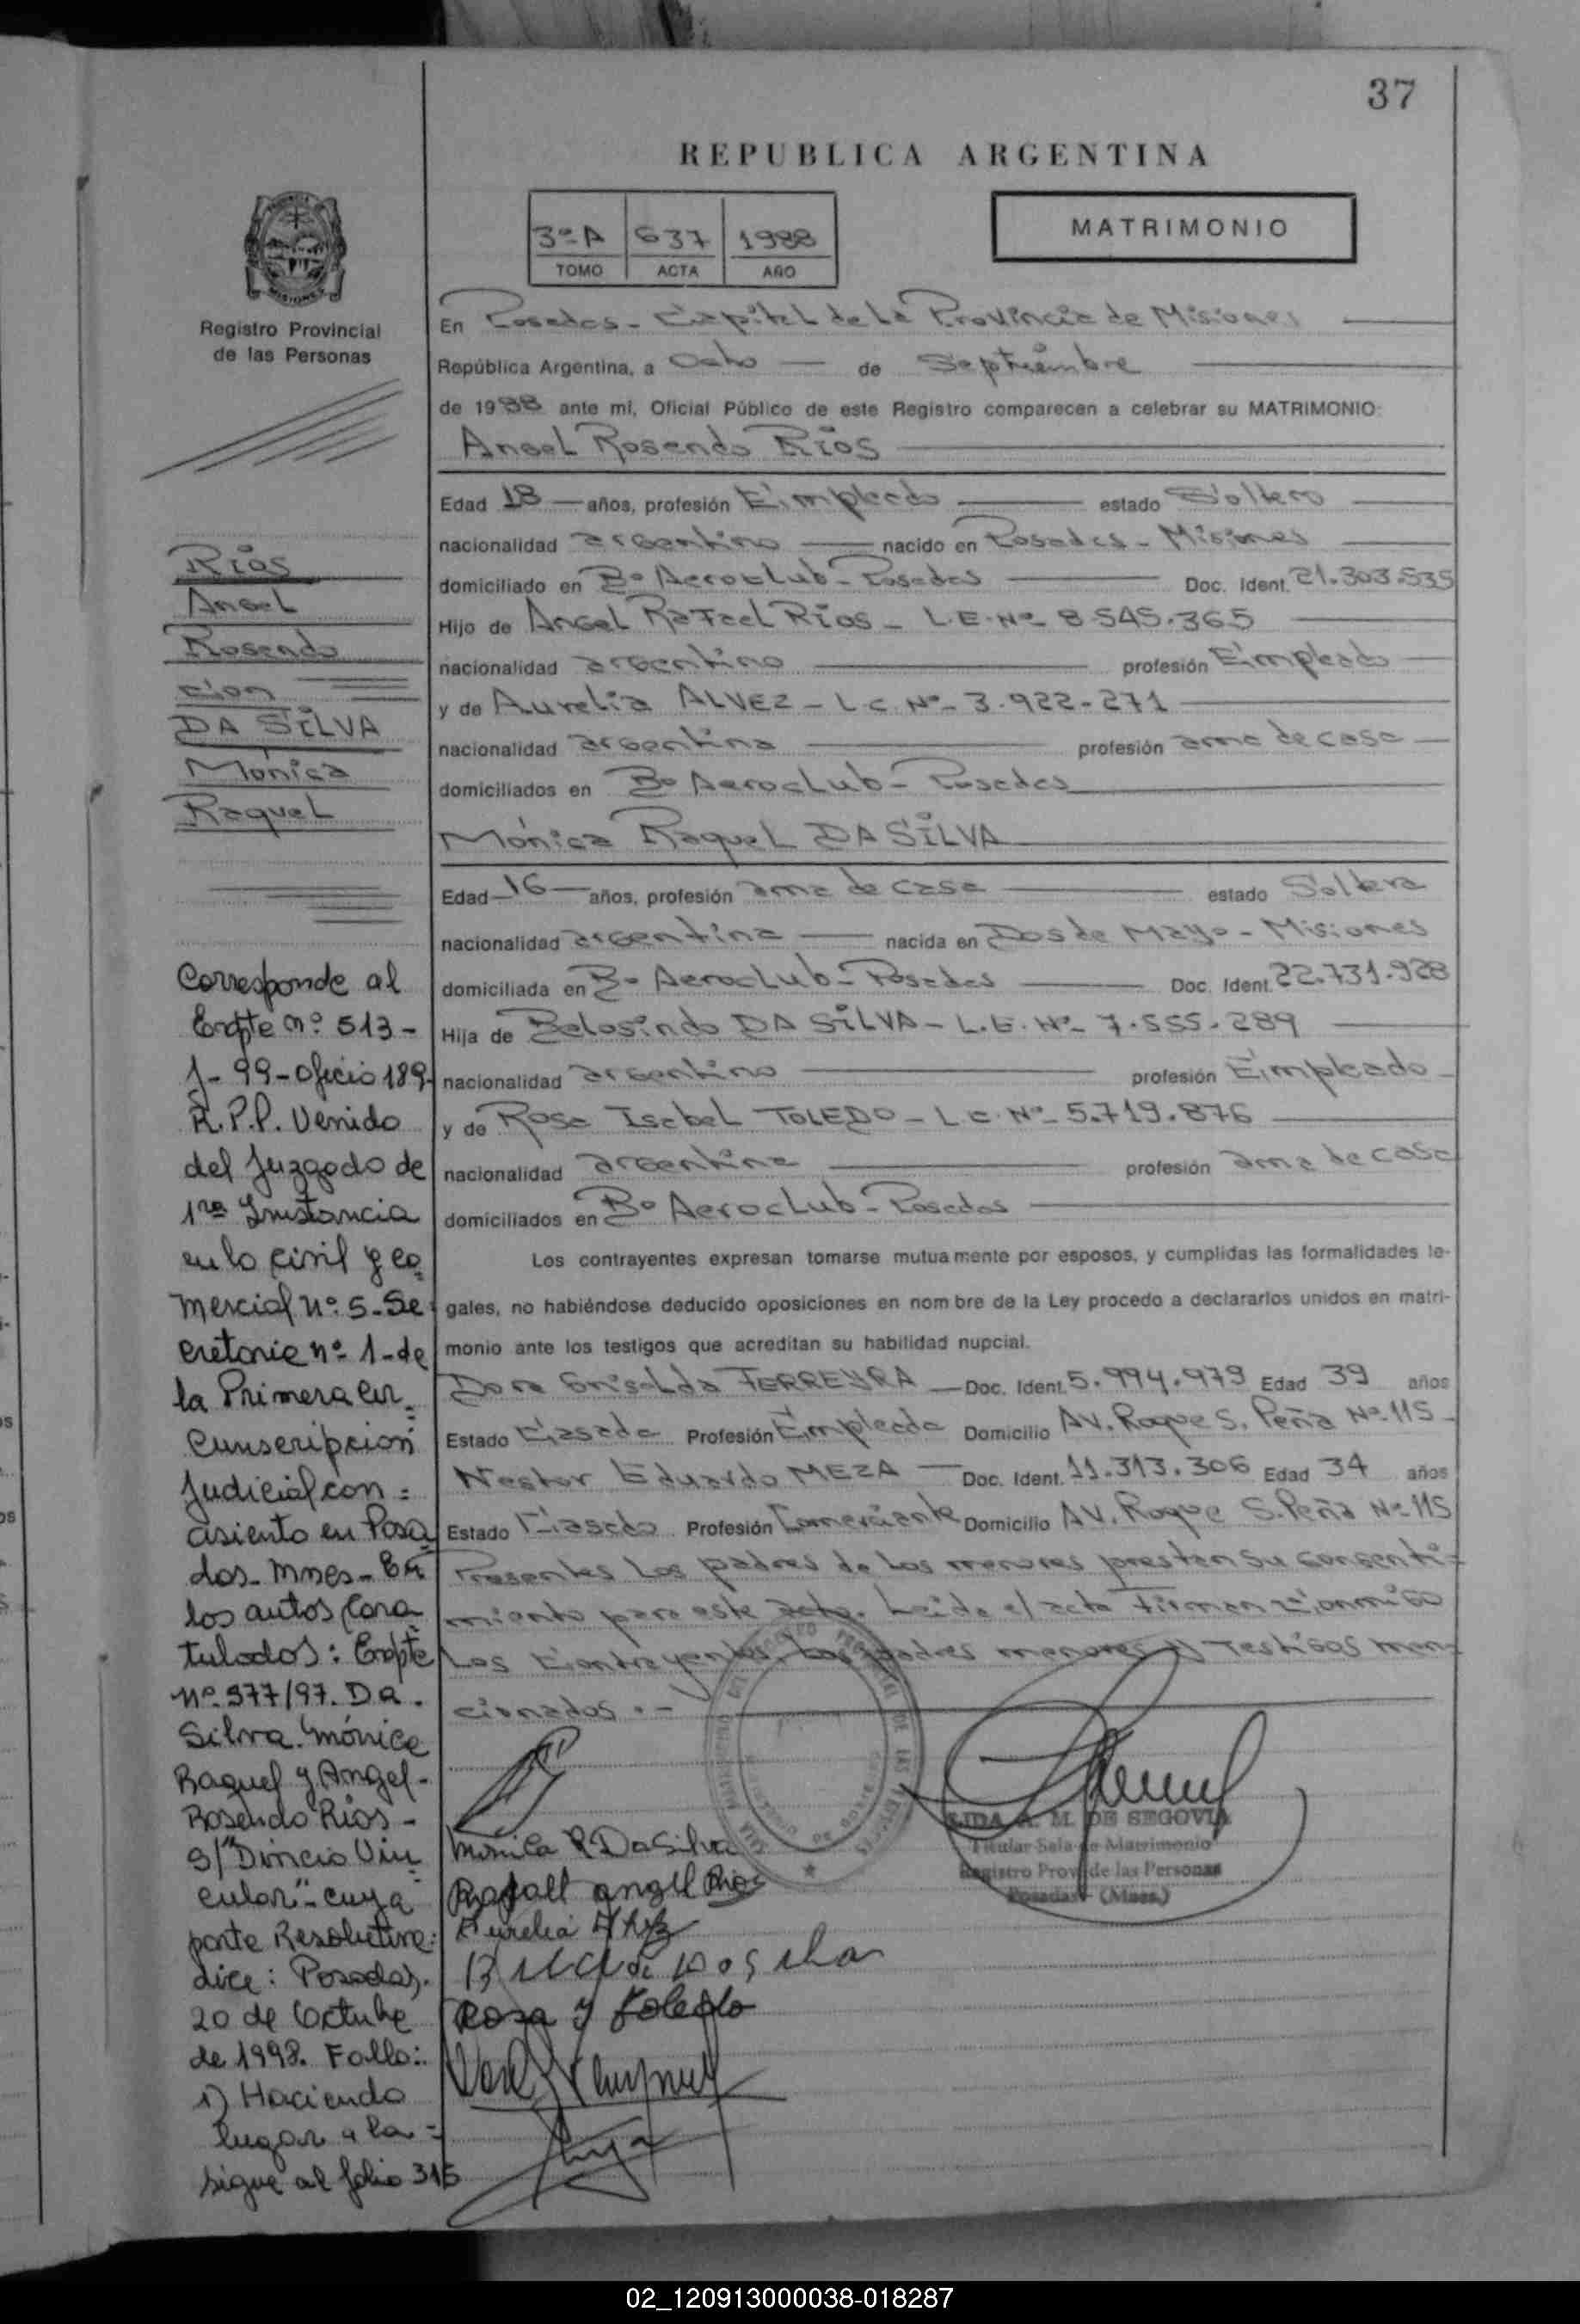 37
REPUBLICA ARGENTINA
MATRIMONIO
3º-A 637 1988
TOMO ACTA AÑO
Registro Provincial
de las Personas
En Posadas - Capital de la Provincia de Misiones
República Argentina, a Ocho de Septiembre
de 1988 ante mí, Oficial Público de este Registro comparecen a celebrar su MATRIMONIO:
Angel Rosendo Ríos
Edad 18 años, profesión Empleado estado Soltero
nacionalidad argentino nacido en Posadas - Misiones
domiciliado en Bº Aeroclub - Posadas Doc. Ident. 21.303.535
Hijo de Angel Rafael Ríos - L.E.Nº- 8.545.365
nacionalidad argentino profesión Empleado
y de Aurelia ALVEZ - L.C. Nº- 3.922.271
nacionalidad argentina profesión ama de casa
domiciliados en Bº Aeroclub - Posadas
Mónica Raquel DA SILVA
Edad 16 años, profesión ama de casa estado Soltera
nacionalidad argentina nacida en Dos de Mayo - Misiones
domiciliada en Bº Aeroclub - Posadas Doc. Ident. 22.731.928
Hija de Belosindo DA SILVA - L.E. Nº- 7.555.289
nacionalidad argentino profesión Empleado
y de Rosa Isabel TOLEDO - L.C. Nº- 5.719.876
nacionalidad argentina profesión ama de casa
domiciliados en Bº Aeroclub - Posadas
Los contrayentes expresan tomarse mutuamente por esposos, y cumplidas las formalidades le-
gales, no habiéndose deducido oposiciones en nombre de la Ley procedo a declararlos unidos en matri-
monio ante los testigos que acreditan su habilidad nupcial.
Dora Griselda FERREYRA Doc. Ident. 5.994.979 Edad 39 años
Estado Casada Profesión Empleada Domicilio AV. Roque S. Peña Nº-115
Nestor Eduardo MEZA Doc. Ident. 11.313.306 Edad 34 años
Estado Casado Profesión Comerciante Domicilio AV. Roque S. Peña Nº-115
Presentes los padres de los menores prestan su consenti=
miento para este acto. Leida el acta Firman Conmigo
los Contrayentes, los padres menores y Testigos men=
cionados.-
Monica R DaSilva
Rafael angel Rios
Aurelia Alvez
Rosa y toledo
LIDA A. M. DE SEGOVIA
Titular Sala de Matrimonio
Registro Prov. de las Personas
Posadas (Mnes.)
Ríos
Angel
Rosendo
con
DA SILVA
Mónica
Raquel
Corresponde al
Expte nº 513-
J- 99- Oficio 189-
R.P.P. Venido
del Juzgado de
1ra Instancia
en lo Civil y Co=
mercial nº 5- Se=
cretaria nº 1- de
la Primera Cir=
cunscripción
Judicial con=
asiento en Posa=
das- Mnes- En
los autos Cara=
tulados: Expte
nº 377/97. Da.
Silva. Mónica
Raquel y Angel-
Rosendo Rios-
S/"Divorcio Vin=
cular"- cuya
parte Resolutiva:
dice: Posadas.
20 de Octubre
de 1998. Fallo:
1) Haciendo
lugar a la=
sigue al folio 315
02_120913000038-018287